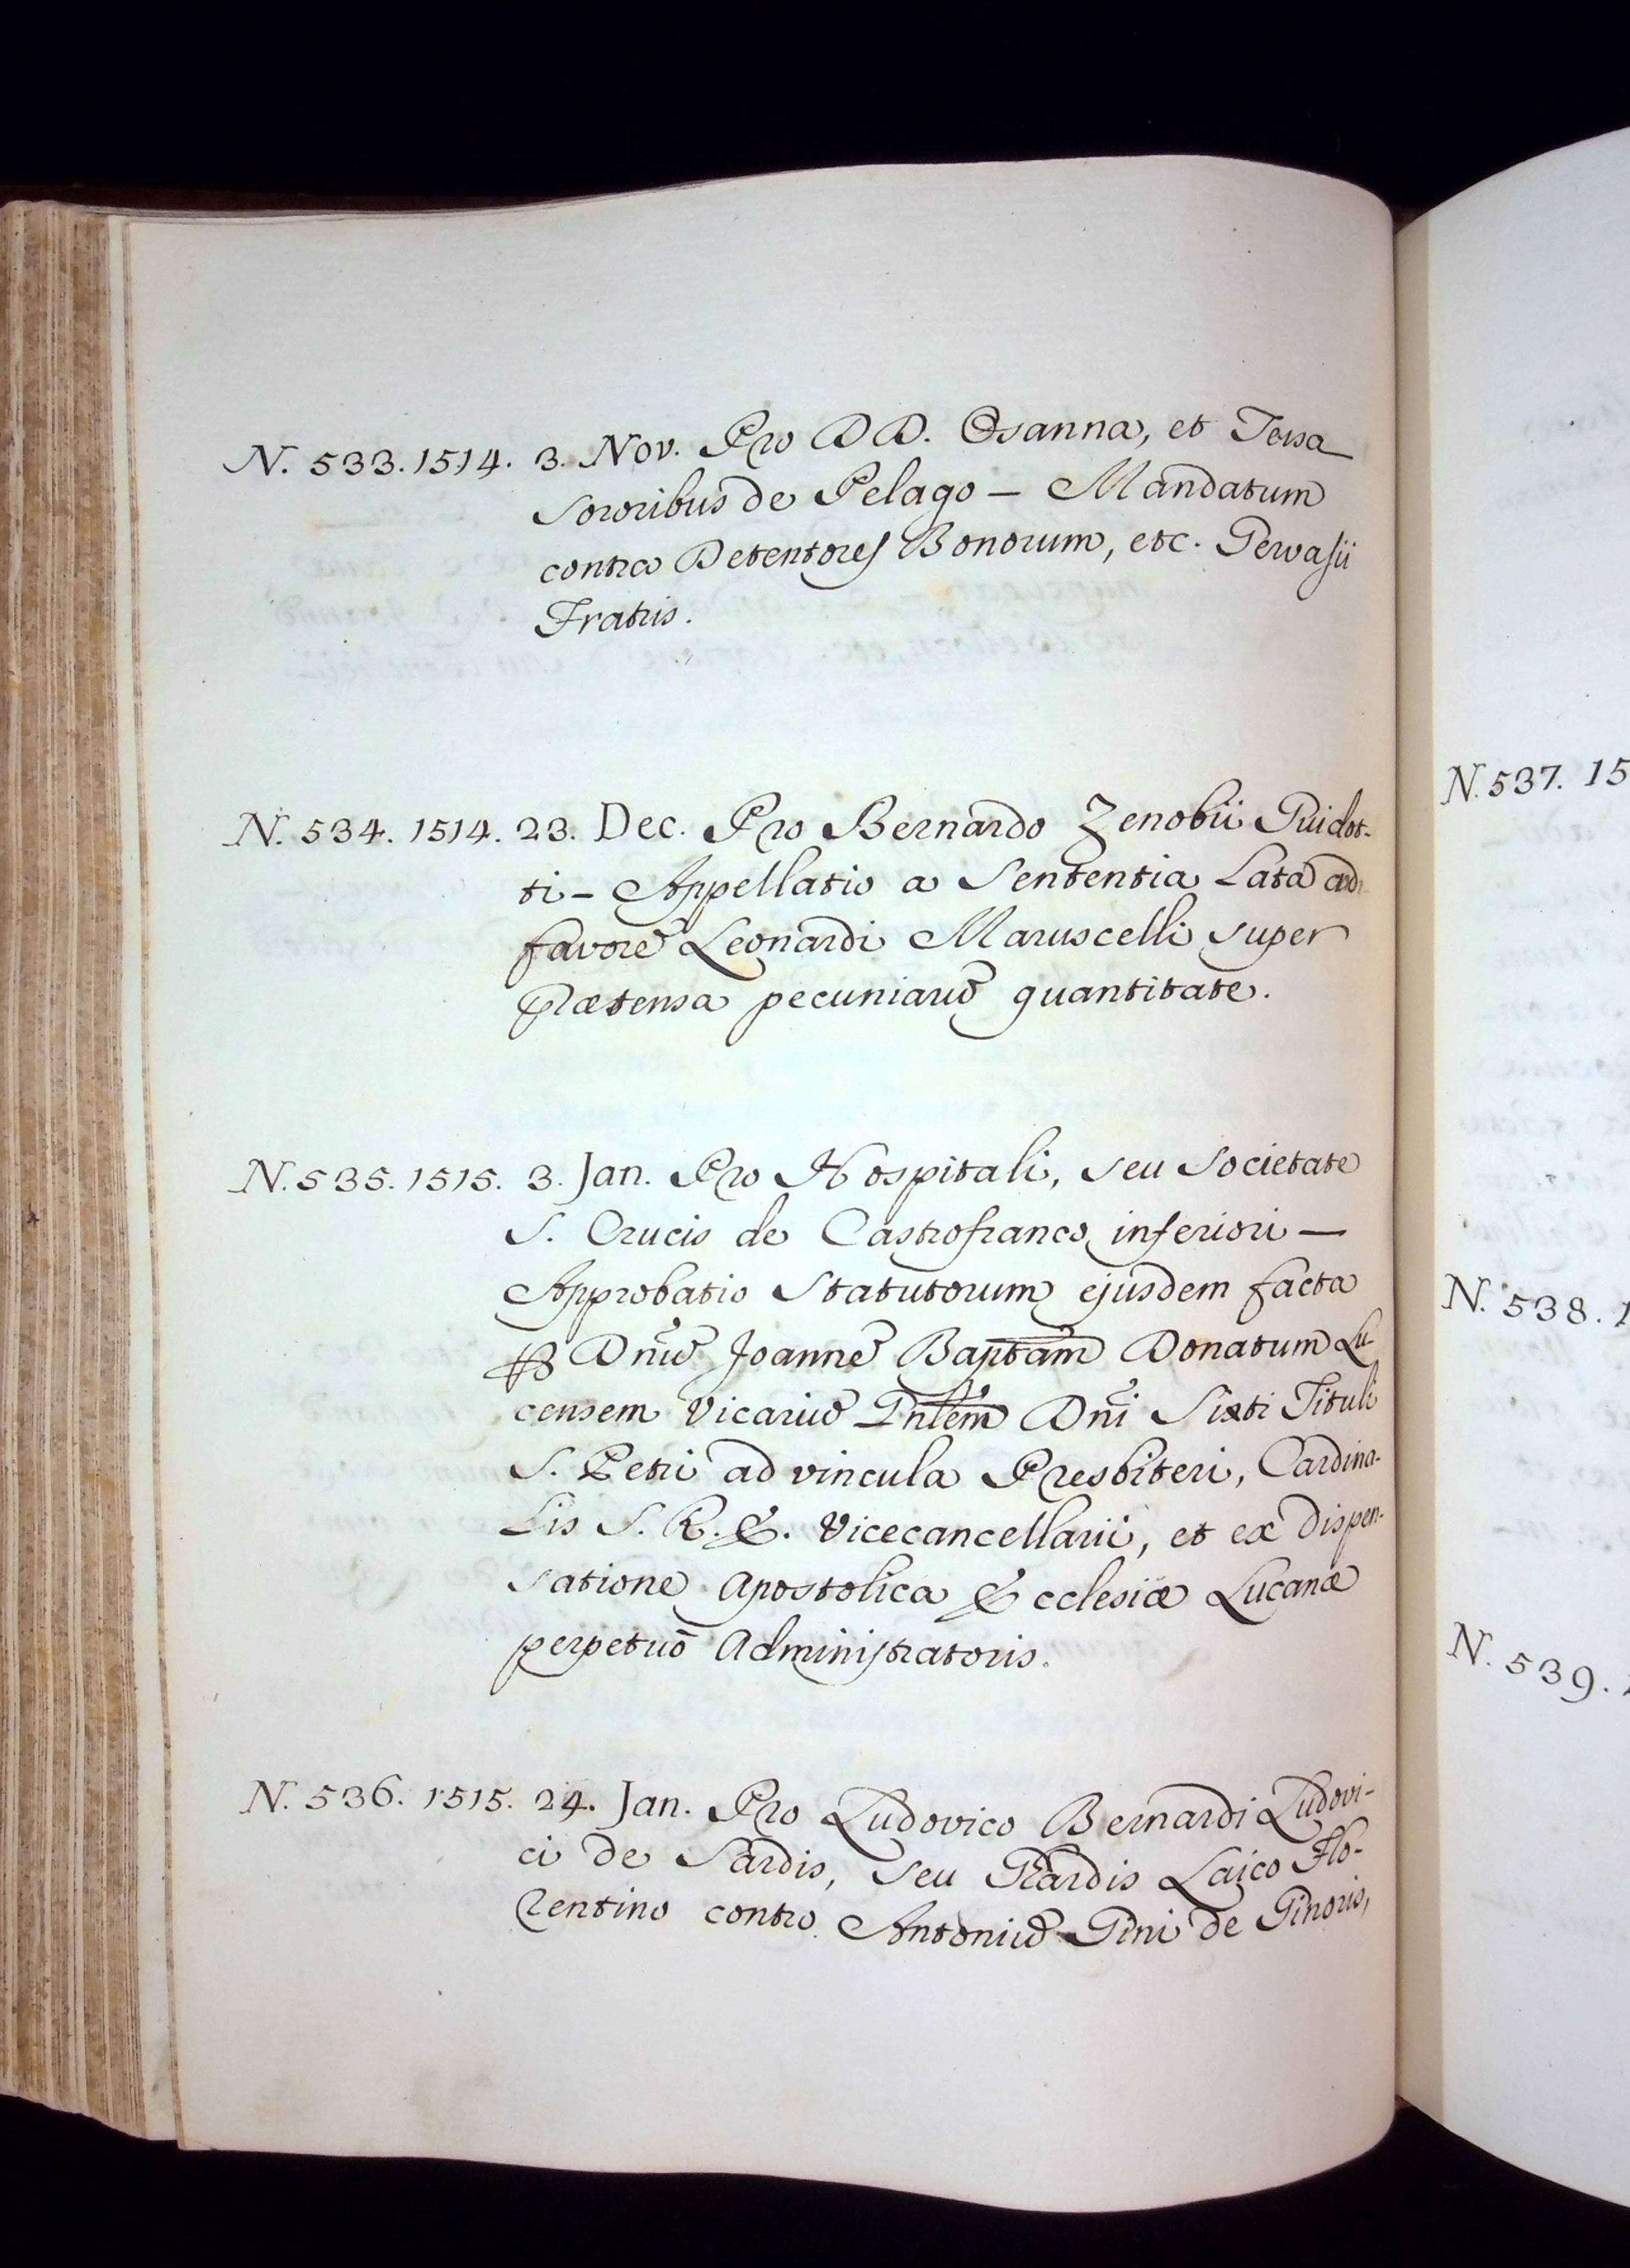 N. 533. 1514. 3. Nov. Pro DD. Osanna, et Tessa
Sororibus de Pelago – Mandatum
contra Detentores Bonorum, etc. Gervasii
Fratris.
N. 534. 1514. 23. Dec. Pro Bernardo Zenobii Guidot-
ti – Appellatio a Sententia Lata ad
favorē Leonardi Maruscelli super
prætensa pecuniarū quantitate.
N. 535. 1515. 3. Jan. Pro Hospitali, seu Societate
S. Crucis de Castrofranco inferiori –
Approbatio Statutorum ejusdem facta
ꝑ Dn̄ū Joannē Bapt̄am Donatum Lu-
censem Vicariū Gn̄lem Dn̄i Sixti Tituli
S. Petri ad vincula Presbiteri, Cardina-
lis S. R. E. Vicecancellarii, et ex dispen-
satione Apostolica Ecclesiæ Lucanæ
perpetuō Administratoris.
N. 536. 1515. 24. Jan. Pro Ludovico Bernardi Ludovi-
ci de Sardis, seu Gardis Laico Flo-
rentino contro Antoniū Gini de Ginoris,
N. 537. 15
N. 538. 1
N. 539. 1